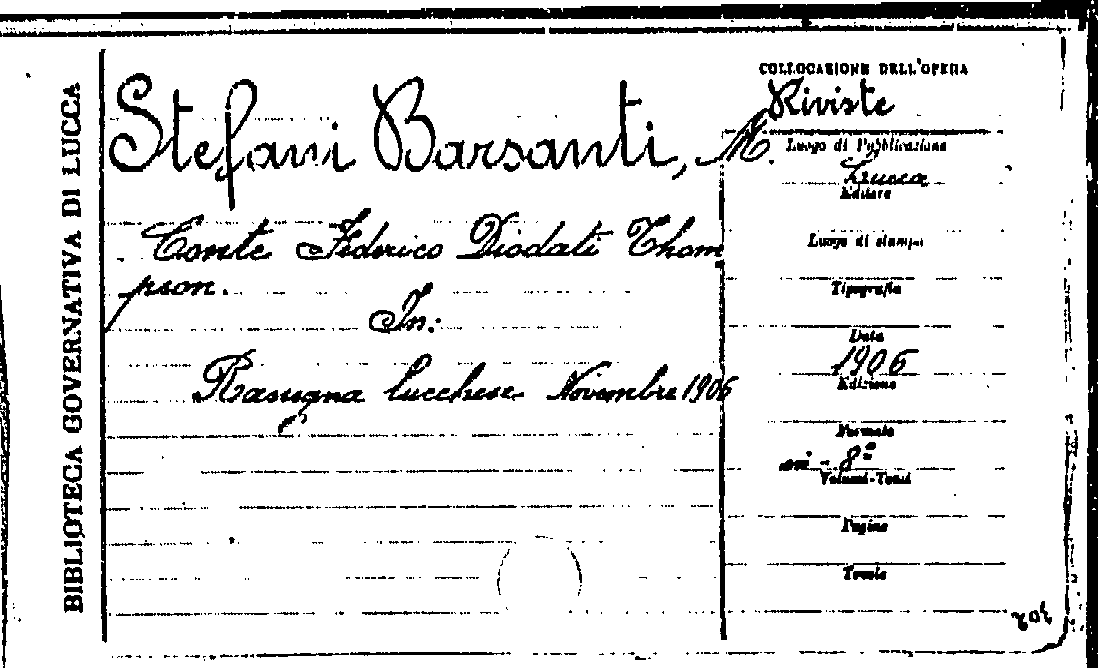 BIBLIOTECA GOVERNATIVA DI LUCCA
Stefani Barsanti, M.
Conte Federico Diodati Thom
pson.
In:
Rassegna lucchese Novembre 1906
COLLOCAZIONE DELL'OPERA
Riviste
Luogo di Pubblicazione
Lucca
Editore
Luogo di stampa
Tipografia
Data
1906
Edizione
Formato
in-8º
Volumi-Tomi
Pagine
Tavole